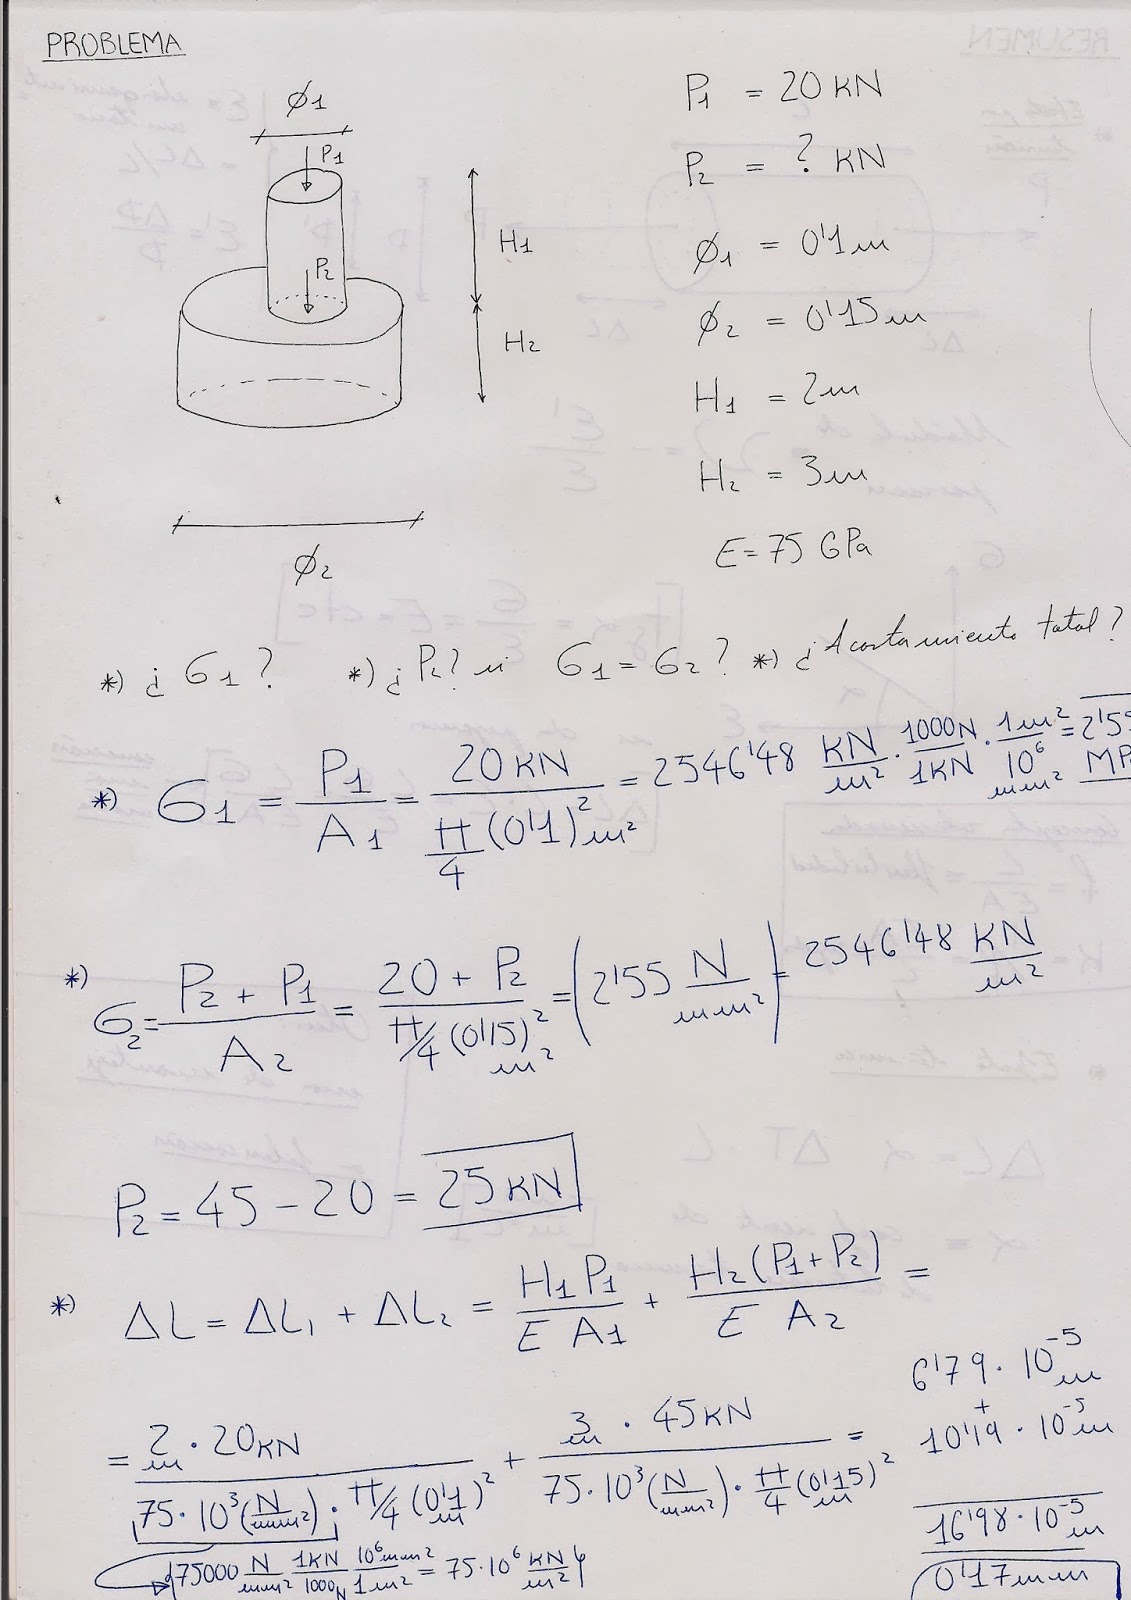 PROBLEMA
Ø1
P1
P2
H1
H2
Ø2
P1 = 20 KN
P2 = ? KN
Ø1 = 0'1 m
Ø2 = 0'15 m
H1 = 2 m
H2 = 3 m
E = 75 GPa
*) ¿ σ1 ? *) ¿ P2? si σ1 = σ2 ? *) ¿Acortamiento total?
*) σ1 = P1 / A1 = 20 KN / (π/4 (0'1)² m²) = 2546'48 KN/m² · 1000N/1KN · 1m²/10⁶ mm² = 2'55 MP
*) σ2 = (P2 + P1) / A2 = (20 + P2) / (π/4 (0'15)² m²) = (2'55 N/mm²) = 2546'48 KN/m²
P2 = 45 - 20 = 25 KN
*) ΔL = ΔL1 + ΔL2 = H1 P1 / E A1 + H2 (P1 + P2) / E A2 =
= 2 m · 20 KN / (75 · 10³ (N/mm²) · π/4 (0'1 m)²) + 3 m · 45 KN / (75 · 10³ (N/mm²) · π/4 (0'15 m)²) =
75000 N/mm² 1KN/1000N 10⁶mm²/1 m² = 75 · 10⁶ KN/m²
6'79 · 10⁻⁵ m
+
10'19 · 10⁻⁵ m
16'98 · 10⁻⁵ m
0'17 mm